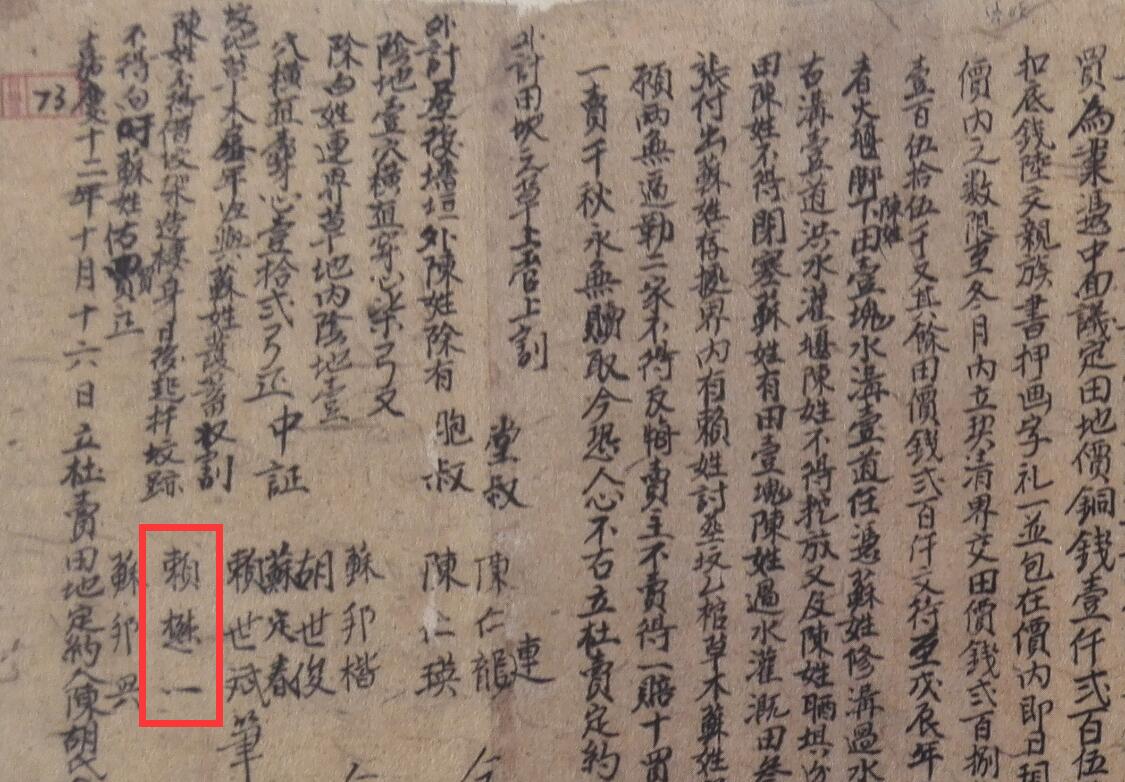 買為業憑中面議定田地價銅錢壹仟弍百伍
扣底錢陸文親族書押画字礼一並包在價內即日
價內之數限至冬月內立契清界交田價錢弍百捌
壹百伍拾伍千文其餘田價錢弍百仟文待至戊辰年
者火堰脚下田壹塊水溝壹道任憑蘇姓修溝過水
陳姓
右溝壹道洪水灌堰陳姓不得挖放又及陳姓晒垻
田陳姓不得閉塞蘇姓有田壹塊陳姓過水灌溉田叁
張付出蘇姓存據界內有賴姓討葬坟乙棺草木蘇姓
願兩無逼勒二家不得反悔賣主不賣得一賠十買
一賣千秋永無贖取今恐人心不古立杜賣定約
外計田坎之草上管上割
堂叔 陳仁龍 連
胞叔 陳仁瑛
外計屋後墻垣外陳姓除有
陰地壹穴橫直穿心柒弓又
除向姓連界草地內陰地壹
穴橫直穿心壹拾弍弓正
中証
蘇邦楷
胡世俊
蘇定春
賴世斌筆
賴懋一
蘇邦興
草木 年 與蘇姓護蓄 割
陳姓 日後起扦坟跡
不得向 蘇姓估買 正
嘉慶十二年十月十六日立杜賣田地定約人陳胡氏
73